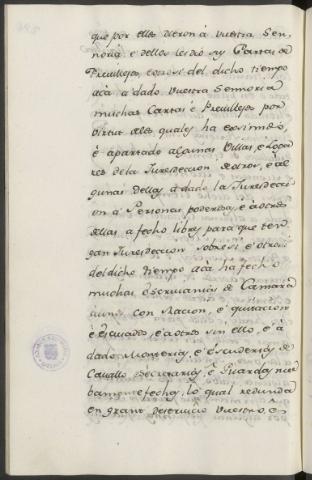 que por ellos dieron à Vuestra Sen
noria è dellos les dio sus Cartas de
Previllejos, eotrosi del dicho tiempo
acà a dado Vuestra Sennoria
muchas Cartas è Previllejos por
virtut delos quales ha eximido,
è apartado algunas Villas, è Loga
res dela Juresdeccion deotros, è al
gunas dellas à dado la Juresdecci
on à Personas poderosas, è aotros
dellas a fecho libres para que ten
gan Juresdeccion sobresi è otrosi
del dicho tiempo acà ha fecho
muchas Escrivanias de Camara
con Racion, è quitacion
è Escusados, è aotros sin ello, è à
dado Monterias, è Escuderias de
Cavallo, Secretarias, è Guardas nue
bamente fechos, lo qual redunda
en grant deservicio Vuestro, en